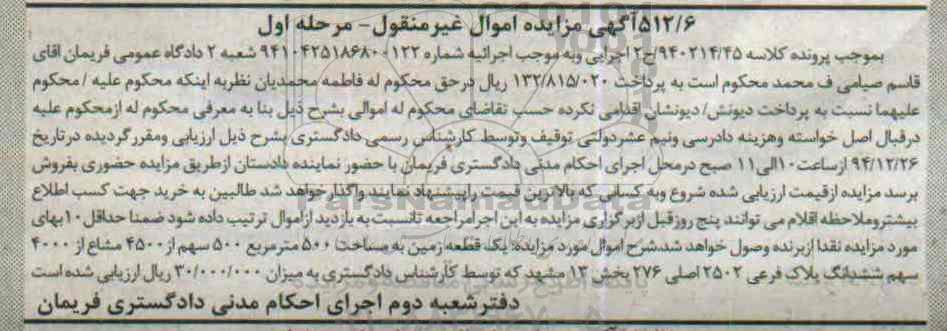 ۵۱۲/۶آگهی مزایده اموال غیرمنقول- مرحله اول
بموجب پرونده کلاسه ۹۴۰۲۱۴/۴۵/ح۲اجرایی وبه موجب اجرائیه شماره ۹۴۱۰۴۲۵۱۸۶۸۰۰۱۲۲ شعبه ۲ دادگاه عمومی فریمان اقای
قاسم صیامی ف محمد محکوم است به پرداخت ۱۳۲/۸۱۵/۰۲۰ ریال درحق محکوم له فاطمه محمدیان نظربه اینکه محکوم علیه /محکوم
علیهما نسبت به پرداخت دیونش/دیونشان اقدامی نکرده حسب تقاضای محکوم له اموالی بشرح ذیل بنا به معرفی محکوم له ازمحکوم علیه
درقبال اصل خواسته وهزینه دادرسی ونیم عشردولتی توقیف وتوسط کارشناس رسمی دادگستری بشرح ذیل ارزیابی ومقررگردیده درتاریخ
۹۴/۱۲/۲۶ ازساعت۱۰الی۱۱ صبح درمحل اجرای احکام مدنی دادگستری فریمان با حضور نماینده دادستان ازطریق مزایده حضوری بفروش
برسد مزایده ازقیمت ارزیابی شده شروع وبه کسانی که بالاترین قیمت راپیشنهاد نمایند واگذارخواهد شد طالبین به خرید جهت کسب اطلاع
بیشتروملاحظه اقلام می توانند پنج روزقبل ازبرگزاری مزایده به این اجرامراجعه تانسبت به بازدید ازاموال ترتیب داده شود ضمنا حداقل ۱۰بهای
مورد مزایده نقدا ازبرنده وصول خواهد شد.شرح اموال مورد مزایده: یک قطعه زمین به مساحت ۵۰۰ مترمربع ۵۰۰ سهم از۴۵۰۰ مشاع از ۴۰۰۰
سهم ششدانگ پلاک فرعی ۲۵۰۲اصلی ۲۷۶ بخش ۱۳ مشهد که توسط کارشناس دادگستری به میزان ۳۰/۰۰۰/۰۰۰ ریال ارزیابی شده است
دفترشعبه دوم اجرای احکام مدنی دادگستری فریمان
ParsNamadData